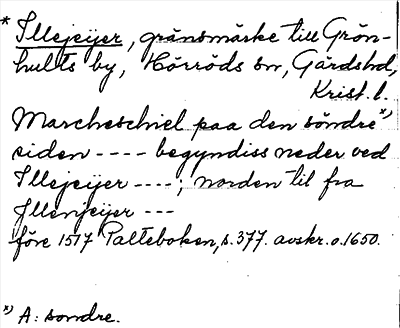 * Illejeijer, gränsmärke till Grön-
hults by, Hörröds sn, Gärdshd,
Krist. l.
Marcheschiel paa den söndre x)
siden ---- begyndiss neder ved
Illejeijer ----; norden til fra
Jllenjeijer ---
före 1517 Palteboken, s. 377. avskr. o. 1650.
x) A: sondre.